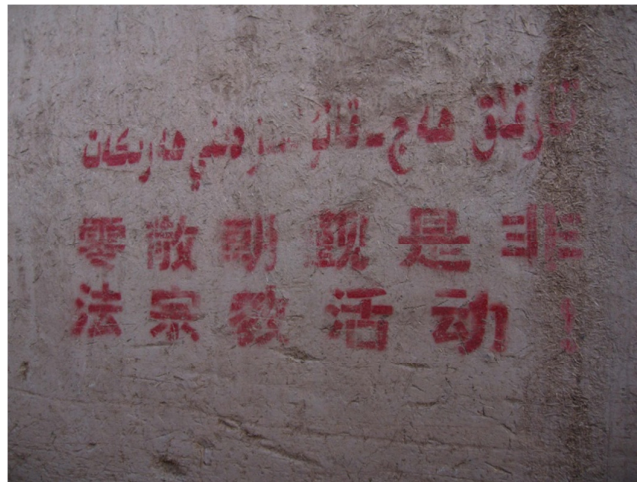 تارقاق ھەج-قانۇنسىز دىنىي ھەرىكەت
零散朝觐是非
法宗教活动！